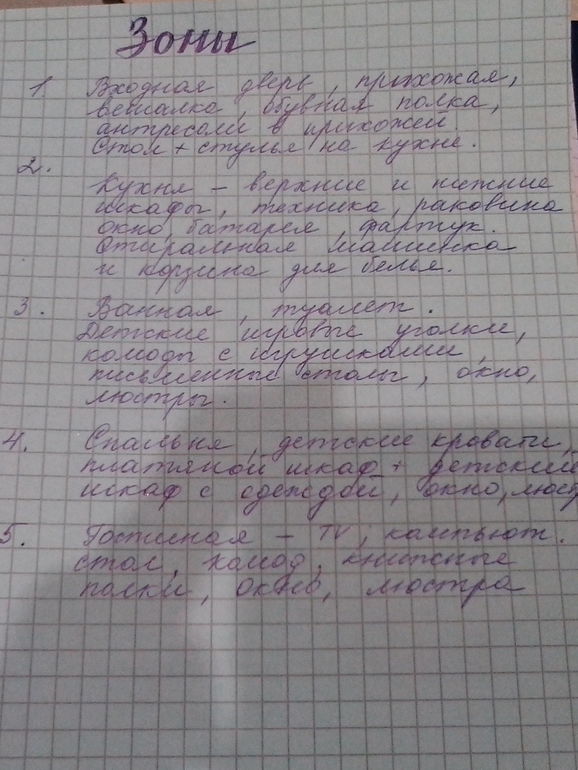 Зоны
1. Входная дверь, прихожая,
вешалка, обувная полка,
антресоли в прихожей
Стол + стулья на кухне.
2.
Кухня – верхние и нижние
шкафы, техника, раковина
окно, батарея, фартук.
Стиральная машинка
и корзина для белья.
3. Ванная, туалет.
Детские игровые уголки,
комоды с игрушками,
письменные столы, окно,
люстры.
4. Спальня, детские кровати,
платяной шкаф + детский
шкаф с одеждой, окно, люст
5. Гостиная – TV, компьют.
стол, комод, книжные
полки, окно, люстра